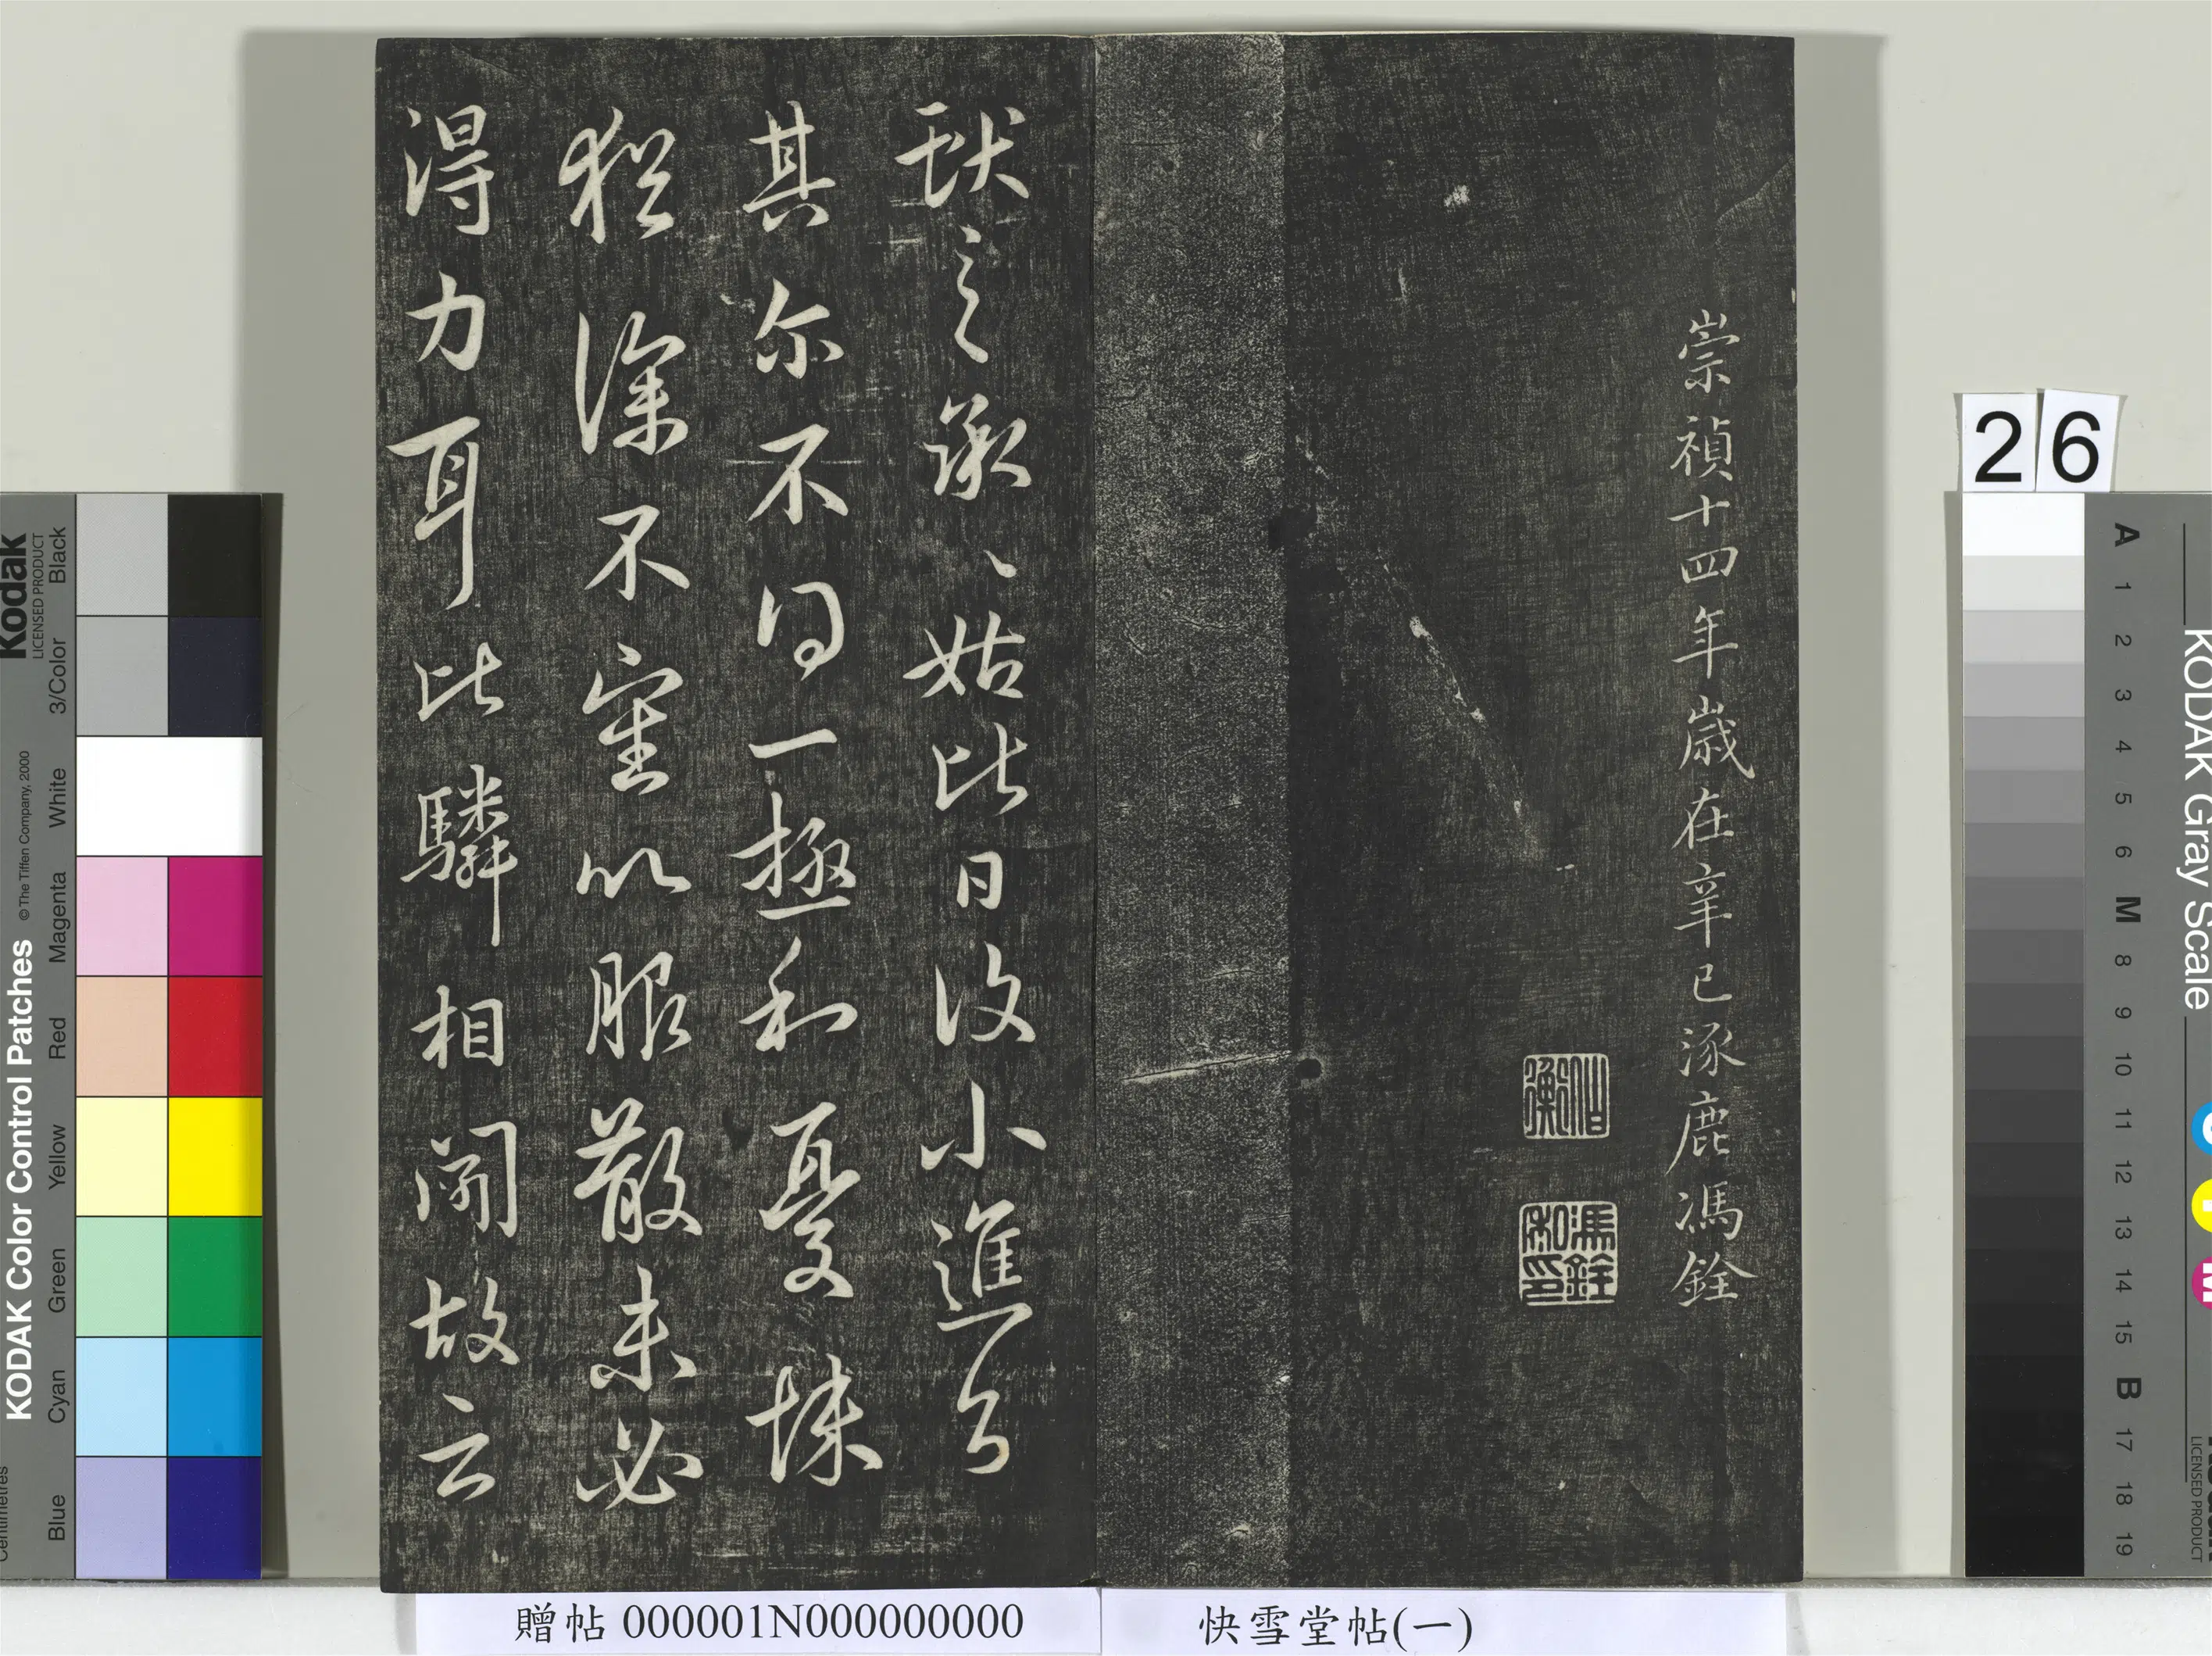 崇禎十四年歲在辛巳涿鹿馮銓
伯衡
馮銓私印
獻之承〻姑比日復小進退
其尔不得一極和憂悚
猶深不審以服散未必
得力耳比驎相聞故云
26
快雪堂帖(一)
贈帖 000001N000000000
KODAK Color Control Patches
© The Tiffen Company, 2000
Kodak
LICENSED PRODUCT
Black
3/Color
White
Magenta
Red
Yellow
Green
Cyan
Blue
Centimetres
KODAK Gray Scale
A 1 2 3 4 5 6 M 8 9 10 11 12 13 14 15 B 17 18 19
C
Y
M
LICENSED PRODUCT